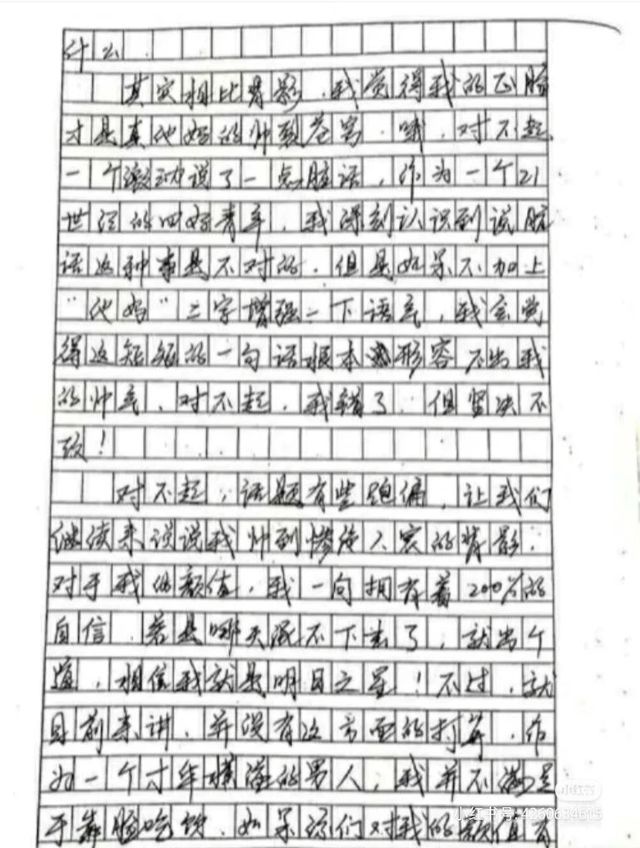 什么
其实相比背影，我觉得我的正脸
才是真他妈的帅到苍穹，哦，对不起，
一个激动说了一点脏话，作为一个21
世纪的四好青年，我深刻认识到说脏
话这种事是不对的，但是如果不加上
“他妈”二字增强一下语气，我会觉
得这短短的一句话根本形容不出我
的帅气，对不起，我错了，但坚决不
改！
对不起，话题有些跑偏，让我们
继续来说说我帅到惨绝人寰的背影，
对于我的颜值，我一向拥有着200%的
自信，若是哪天混不下去了，就出个
道，相信我就是明日之星！不过，就
目前来讲，并没有这方面的打算，作
为一个才华横溢的男人，我并不满足
于靠脸吃饭，如果你们对我的颜值有
小红书
小红书号:4260634615